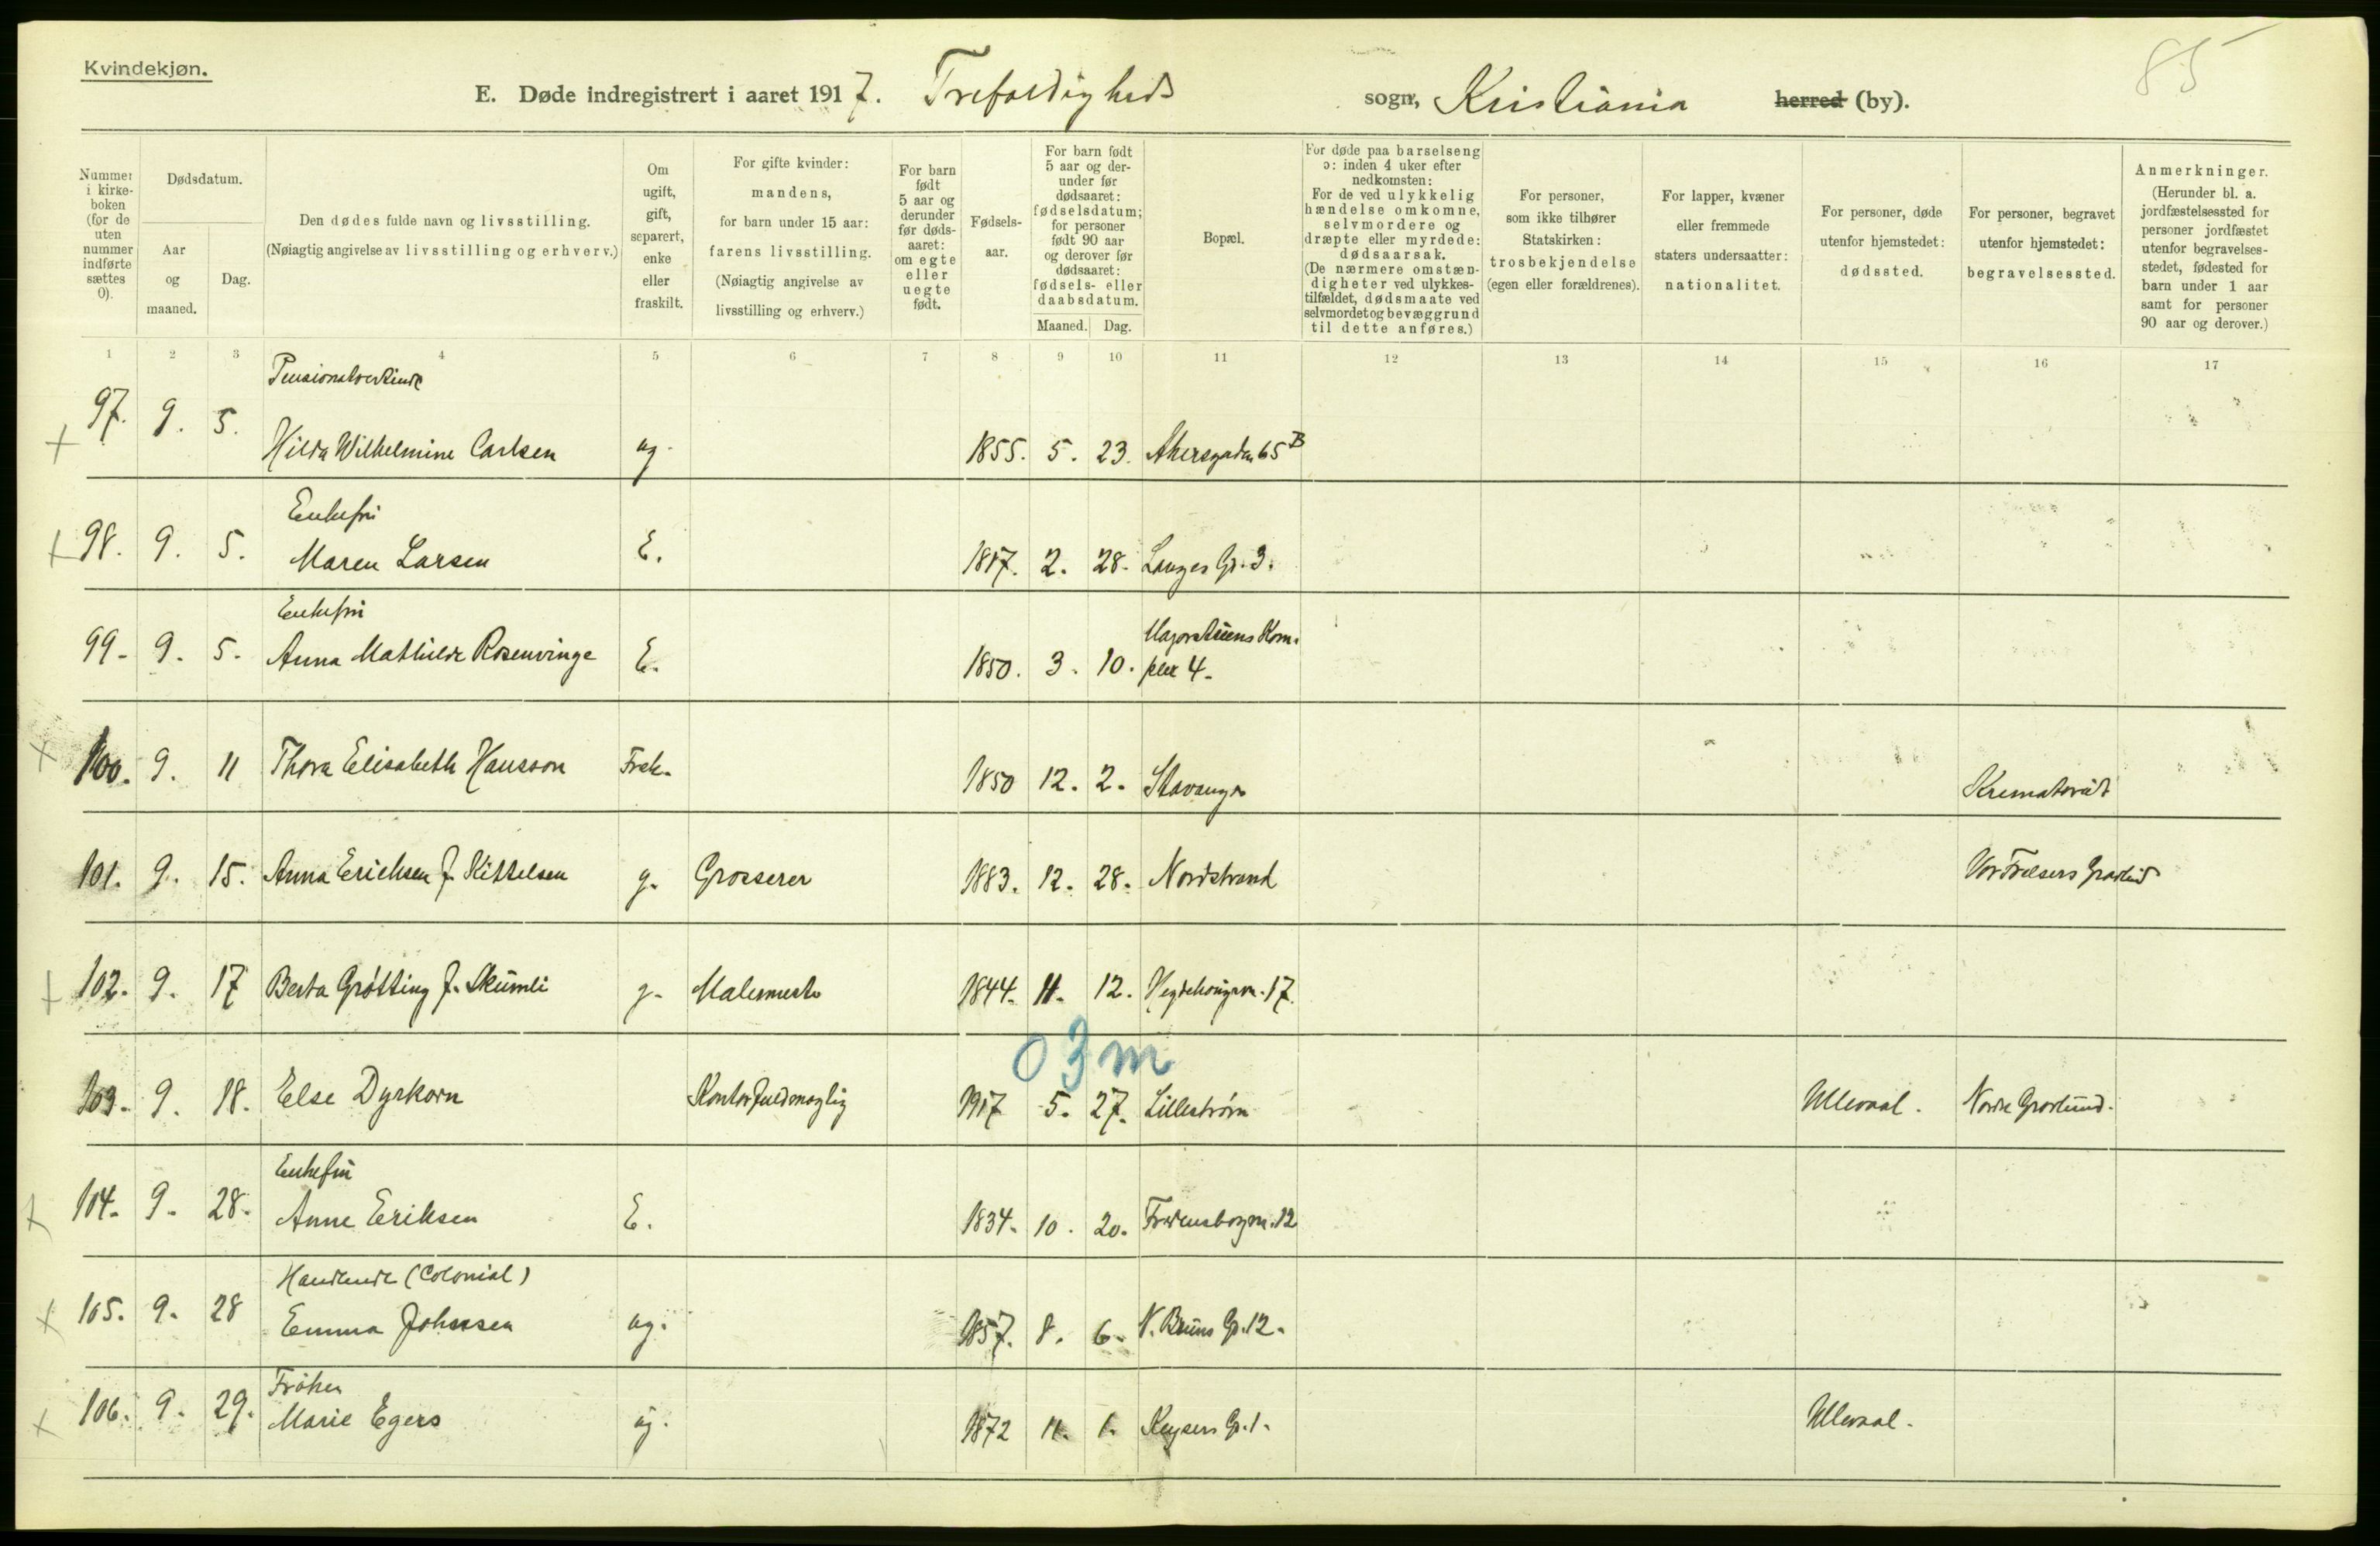 Kvindekjøn.
85
E. Døde indregistrert i aaret 1917. Trefoldigheds sogn, Kristiania herred (by).
Nummer i kirkeboken (for de uten nummer indførte sættes 0).
Dødsdatum.
Aar og maaned.
Dag.
Den dødes fulde navn og livsstilling.
(Nøiagtig angivelse av livsstilling og erhverv.)
Om ugift, gift, separert, enke eller fraskilt.
For gifte kvinder: mandens, for barn under 15 aar: farens livsstilling.
(Nøiagtig angivelse av livsstilling og erhverv.)
For barn født 5 aar og derunder før dødsaaret: om egte eller uegte født.
Fødselsaar.
For barn født 5 aar og derunder før dødsaaret: fødselsdatum; for personer født 90 aar og derover før dødsaaret: fødsels- eller daabsdatum.
Maaned. Dag.
Bopæl.
For døde paa barselseng ɔ: inden 4 uker efter nedkomsten:
For de ved ulykkelig hændelse omkomne, selvmordere og dræpte eller myrdede: dødsaarsak.
(De nærmere omstændigheter ved ulykkestilfældet, dødsmaate ved selvmordet og bevæggrund til dette anføres.)
For personer, som ikke tilhører Statskirken: trosbekjendelse (egen eller forældrenes).
For lapper, kvæner eller fremmede staters undersaatter: nationalitet.
For personer, døde utenfor hjemstedet: dødssted.
For personer, begravet utenfor hjemstedet: begravelsessted.
Anmerkninger.
(Herunder bl. a. jordfæstelsessted for personer jordfæstet utenfor begravelsesstedet, fødested for barn under 1 aar samt for personer 90 aar og derover.)
1 2 3 4 5 6 7 8 9 10 11 12 13 14 15 16 17
Pensionatvertinde
97. 9. 5. Hilda Wilhelmine Carlsen ug. 1855. 5. 23. Akersgaden 65 B
Enkefru
98. 9. 5. Maren Larsen E. 1817. 2. 28. Langes Gr. 3.
Enkefru
99. 9. 5. Anna Mathilde Rosenvinge E. 1850. 3. 10. Majorstuens Kom-
plex 4.
100. 9. 11 Thora Elisabeth Hansson Frsk. 1850 12. 2. Stavanger Krematoriet
101. 9. 15. Anna Erichsen f. Kittelsen g. Grosserer 1883. 12. 28. Nordstrand Vor Frelsers Gravlund
102. 9. 17 Berta Grøtting f. Skumli g. Malermester 1844. 11. 12. Hegdehaugsvn. 17.
03m
103. 9. 18. Else Dyrkorn Kontorfuldmægtig 1917 5. 27. Lillestrøm Ullevaal. Nordre Gravlund.
Enkefru
104. 9. 28. Anne Eriksen E. 1834. 10. 20. Fredensborgvn. 12
Handlende (Colonial)
105. 9. 28 Emma Johnsen ug. 1857. 8. 6. N. Bruns Gr. 12.
Frøken
106. 9. 29. Marie Egers ug. 1872 11. 1. Keysers Gr. 1. Ullevaal.